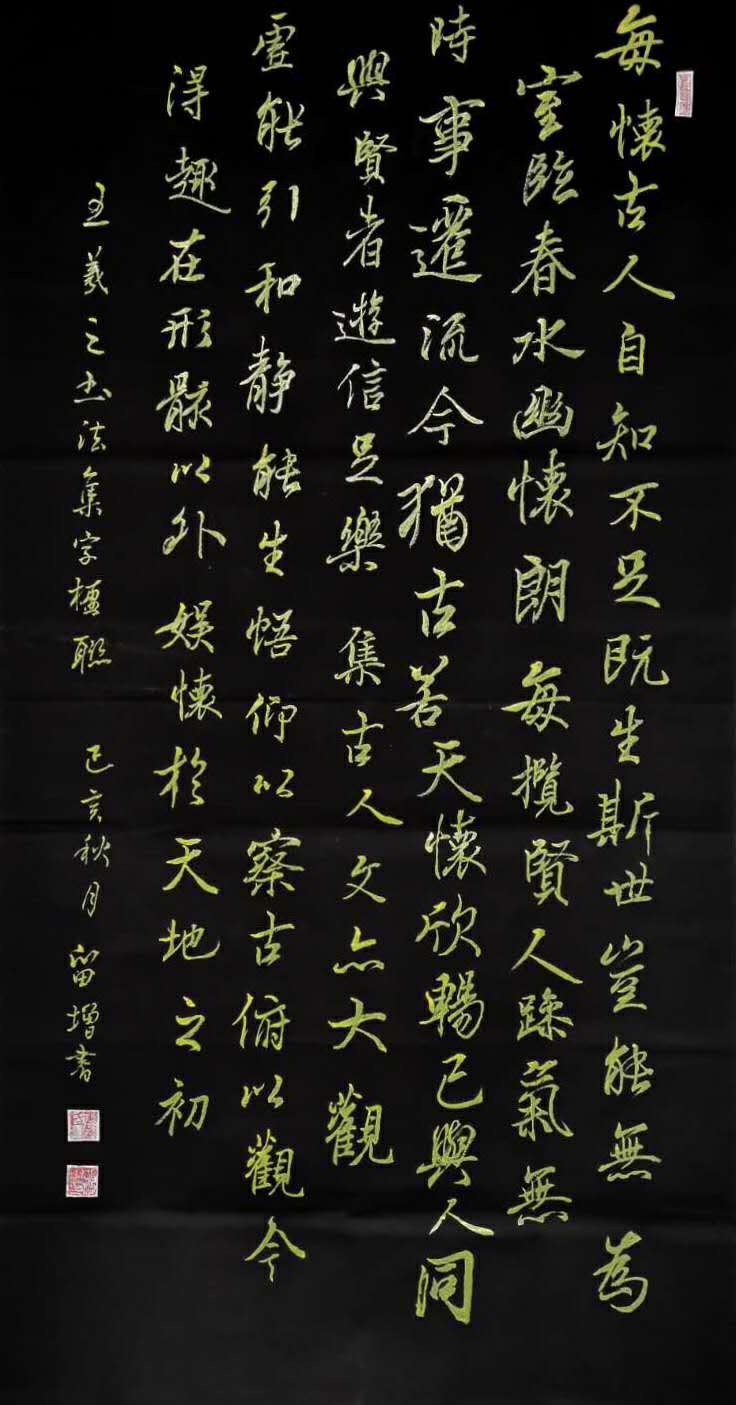 每懷古人自知不足既生斯世豈能無為
室臨春水幽懷朗每攬賢人躁氣無
時事遷流今猶古若天懷欣暢己與人同
與賢者遊信足樂集古人文亦大觀
虛能引和靜能生悟仰以察古俯以觀今
得趣在形骸以外娛懷於天地之初
王羲之书法集字楹聯 己亥秋月 留增書